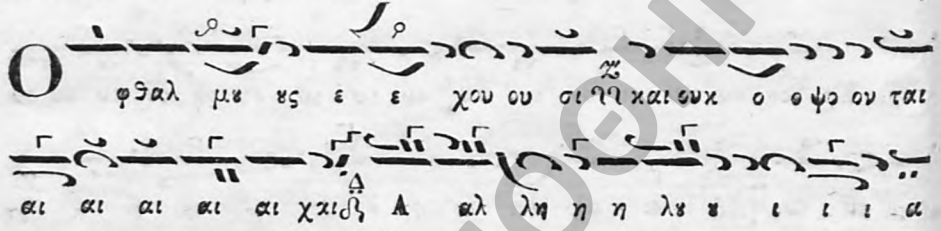 Ο φθαλ μȣ ȣς ε ε χου ου σι και ουκ ο ο ψο ον ται
αι αι αι αι αι χαι Α αλ λη η η λȣ ȣ ι ι ι α